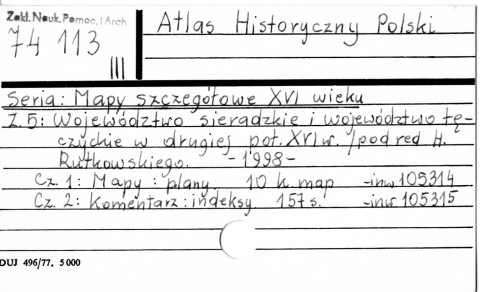 Zakł. Nauk. Pomoc. i Arch
74 113
III
Atlas Historyczny Polski
Seria: Mapy szczegółowe XVI wieku
Z. 5: Województwo sieradzkie i województwo łę-
czyckie w drugiej poł. XVI w. /pod red H.
Rutkowskiego. - 1998 -
Cz. 1: Mapy : plany. 10 k. map -inw. 105314
Cz. 2: Komentarz : indeksy. 157 s. -inw. 105315
DUJ 496/77. 5000